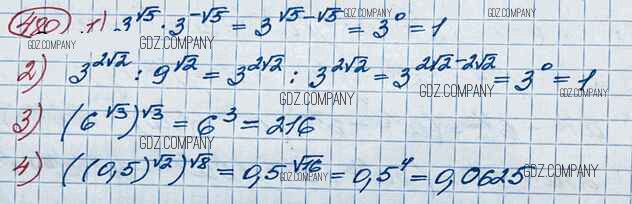 480) 1) 3^√5 · 3^-√5 = 3^√5-√5 = 3^0 = 1
GDZ.COMPANY GDZ.COMPANY GDZ.COMPANY
2) 3^2√2 : 9^√2 = 3^2√2 : 3^2√2 = 3^2√2-2√2 = 3^0 = 1
GDZ.COMPANY GDZ.COMPANY GDZ.COMPANY
3) (6^√3)^√3 = 6^3 = 216
GDZ.COMPANY
4) ((0,5)^√2)^√8 = 0,5^√16 = 0,5^4 = 0,0625
GDZ.COMPANY GDZ.COMPANY